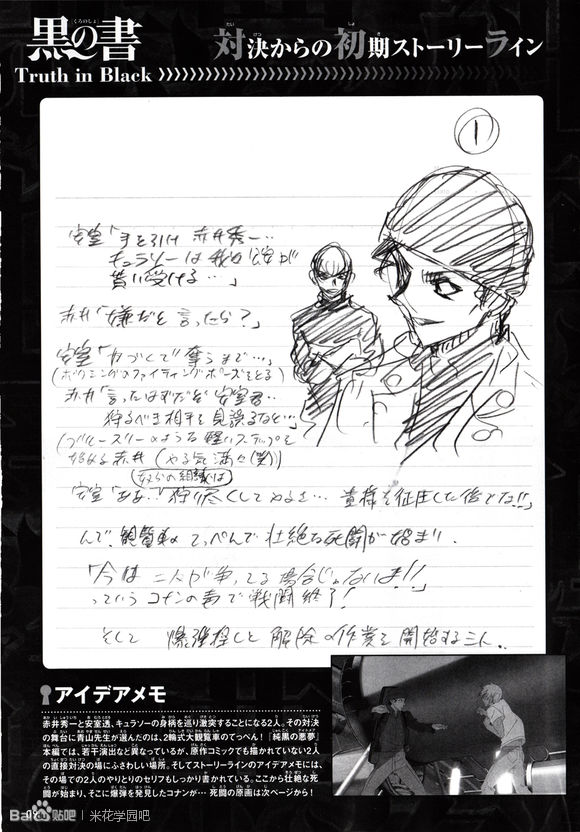 黒の書
くろのしょ
Truth in Black
対決からの初期ストーリーライン
1
安室「手を引け 赤井秀一…
キュラソーは我々公安が
貰い受ける…」
赤井「嫌だと言ったら？」
安室「力づくで奪うまで…」
(ボクシングのファイティングポーズをとる)
赤井「言ったはずだぞ安室君…
狩るべき相手を見誤るなと…」
(ブルースリーのような軽いステップを
始める赤井(やる気満々(笑))
安室「ああ…奴らの組織は狩り尽くしてやるさ…貴様を征圧した後でな!!」
んで、観覧車のてっぺんで壮絶な死闘が始まり、
「今は二人が争ってる場合じゃないよ!!」
っていうコナンの声で戦闘終了！
そして 爆弾探しと解除の作業を開始する三人、
アイデアメモ
赤井秀一と安室透、キュラソーの身柄を巡り激突することになる2人。その対決
の舞台に青山先生が選んだのは、2輪式大観覧車のてっぺん！『純黒の悪夢』
本編では、若干演出など異なっているが、原作コミックでも描かれていない2人
の直接対決の場にふさわしい場所。そしてストーリーラインのアイデアメモには、
その場での2人のやりとりのセリフもしっかり書かれている。ここから壮絶な死
闘が始まり、そこに爆弾を発見したコナンが… 死闘の原画は次ページから！
Bai贴吧 | 米花学园吧